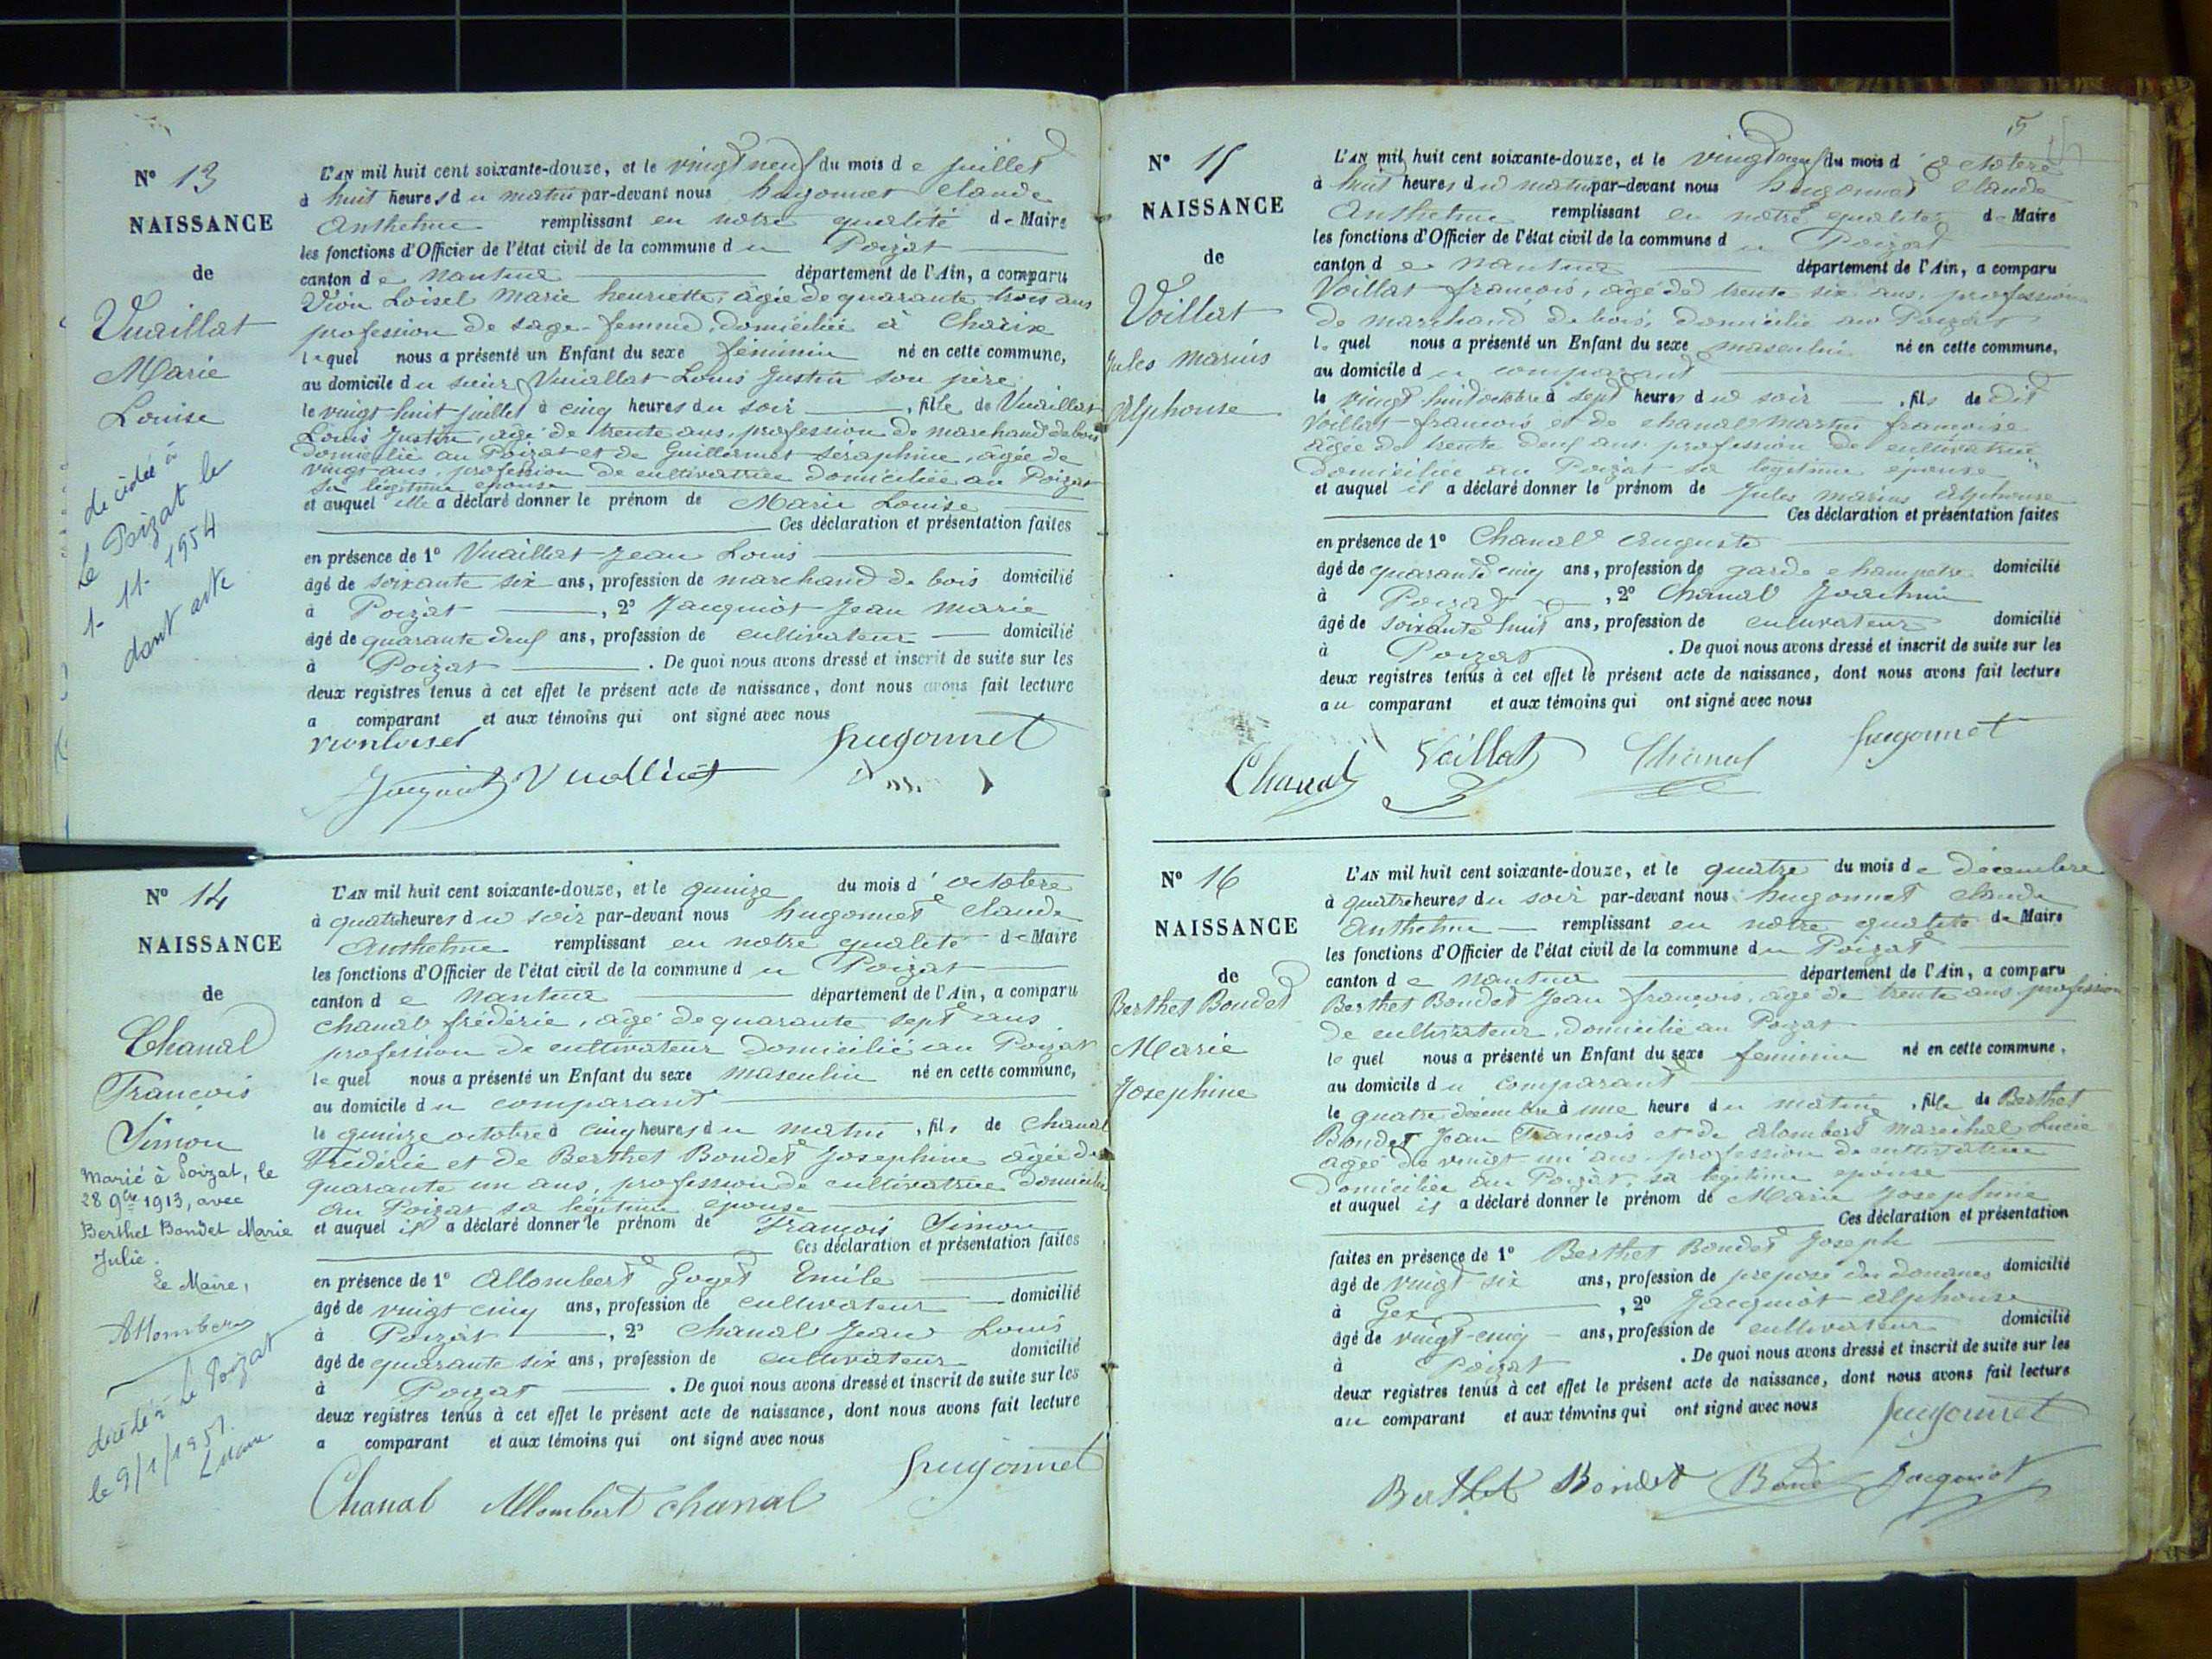 N° 13
NAISSANCE
de
Vuaillat
Marie
Louise
décédée à
Le Poizat le
1. 11. 1954
dont acte
L'AN mil huit cent soixante-douze, et le vingt neuf du mois de juillet
à huit heures du matin par-devant nous hugonnet claude
Anthelme remplissant en notre qualité de Maire
les fonctions d'Officier de l'état civil de la commune du Poizat
canton de nantua département de l'Ain, a comparu
Vion Loisel Marie henriette, âgée de quarante trois ans
profession de sage-femme, domiciliée à Charix
lequel nous a présenté un Enfant du sexe féminin né en cette commune,
au domicile du sieur Vuaillat Louis Justin son père
le vingt-huit juillet à cinq heures du soir, fille de Vuaillat
Louis Justin, âgé de trente ans, profession de marchand de bois
domicilié au Poizat et de Guillermot Séraphine, âgée de
vingt ans, profession de cultivatrice domiciliée au Poizat
sa légitime épouse
et auquel elle a déclaré donner le prénom de Marie Louise
Ces déclaration et présentation faites
en présence de 1° Vuaillat Jean Louis
âgé de soixante six ans, profession de marchand de bois domicilié
à Poizat, 2° Jacquiot Jean Marie
âgé de quarante deuf ans, profession de cultivateur domicilié
à Poizat. De quoi nous avons dressé et inscrit de suite sur les
deux registres tenus à cet effet le présent acte de naissance, dont nous avons fait lecture
a comparant et aux témoins qui ont signé avec nous
vionloisel hugonnet
Jacquiot Vuaillat
N° 14
NAISSANCE
de
Chanal
François
Simon
Marié à Poizat, le
28 9bre 1913, avec
Berthet Bondet Marie
Julie.
Le Maire,
Allombert
décédé à le Poizat
le 9/1/1951.
L'AN mil huit cent soixante-douze, et le quinze du mois d'octobre
à quatre heures du soir par-devant nous hugonnet claude
Anthelme remplissant en notre qualité de Maire
les fonctions d'Officier de l'état civil de la commune du Poizat
canton de Nantua département de l'Ain, a comparu
chanal frédéric, âgé de quarante sept ans
profession de cultivateur domicilié au Poizat
lequel nous a présenté un Enfant du sexe masculin né en cette commune,
au domicile du comparant
le quinze octobre à cinq heures du matin, fils de Chanal
Frédéric et de Berthet Bondet Josephine âgée de
quarante un ans, profession de cultivatrice domiciliée
au Poizat sa légitime épouse
et auquel il a déclaré donner le prénom de François Simon
Ces déclaration et présentation faites
en présence de 1° Allombert Goget Emile
âgé de vingt cinq ans, profession de cultivateur domicilié
à Poizat, 2° Chanal Jean Louis
âgé de quarante six ans, profession de cultivateur domicilié
à Poizat. De quoi nous avons dressé et inscrit de suite sur les
deux registres tenus à cet effet le présent acte de naissance, dont nous avons fait lecture
a comparant et aux témoins qui ont signé avec nous
hugonnet
Chanal Allombert chanal
5
N° 15
NAISSANCE
de
Voillat
Jules Marius
Alphonse
L'AN mil huit cent soixante-douze, et le vingt neuf du mois d'Octobre
à huit heures du matin par-devant nous hugonnet claude
Anthelme remplissant en notre qualité de Maire
les fonctions d'Officier de l'état civil de la commune du Poizat
canton de nantua département de l'Ain, a comparu
Voillat françois, âgé de trente six ans, profession
de marchand de bois, domicilié au Poizat
lequel nous a présenté un Enfant du sexe masculin né en cette commune,
au domicile du comparant
le vingt huit octobre à sept heures du soir, fils de dit
Voillat françois et de chanal Martin françoise
âgée de trente deuf ans profession de cultivatrice
domiciliée au Poizat sa légitime épouse
et auquel il a déclaré donner le prénom de Jules marius Alphonse
Ces déclaration et présentation faites
en présence de 1° Chanal Auguste
âgé de quarante cinq ans, profession de garde champetre domicilié
à Poizat, 2° Chanal Joachim
âgé de soixante huit ans, profession de cultivateur domicilié
à Poizat. De quoi nous avons dressé et inscrit de suite sur les
deux registres tenus à cet effet le présent acte de naissance, dont nous avons fait lecture
au comparant et aux témoins qui ont signé avec nous
Chanal Voillat Chanal hugonnet
N° 16
NAISSANCE
de
Berthet Bondet
Marie
Josephine
L'AN mil huit cent soixante-douze, et le quatre du mois de décembre
à quatre heures du soir par-devant nous hugonnet claude
Anthelme remplissant en notre qualité de Maire
les fonctions d'Officier de l'état civil de la commune du Poizat
canton de Nantua département de l'Ain, a comparu
Berthet Bondet Jean françois, âgé de trente ans, profession
de cultivateur, domicilié au Poizat
lequel nous a présenté un Enfant du sexe feminin né en cette commune,
au domicile du comparant
le quatre décembre à une heure du matin, fille de Berthet
Bondet Jean François et de Alombert maréchal Lucie
âgée de vingt-un ans, profession de cultivatrice
domiciliée au Poizat, sa légitime épouse
et auquel il a déclaré donner le prénom de Marie Josephine
Ces déclaration et présentation
faites en présence de 1° Berthet Bondet Joseph
âgé de vingt six ans, profession de préposé des douanes domicilié
à Gex, 2° Jacquiot Alphonse
âgé de vingt-cinq ans, profession de cultivateur domicilié
à Poizat. De quoi nous avons dressé et inscrit de suite sur les
deux registres tenus à cet effet le présent acte de naissance, dont nous avons fait lecture
au comparant et aux témoins qui ont signé avec nous
hugonnet
Berthet Bondet Bondet Jacquiot